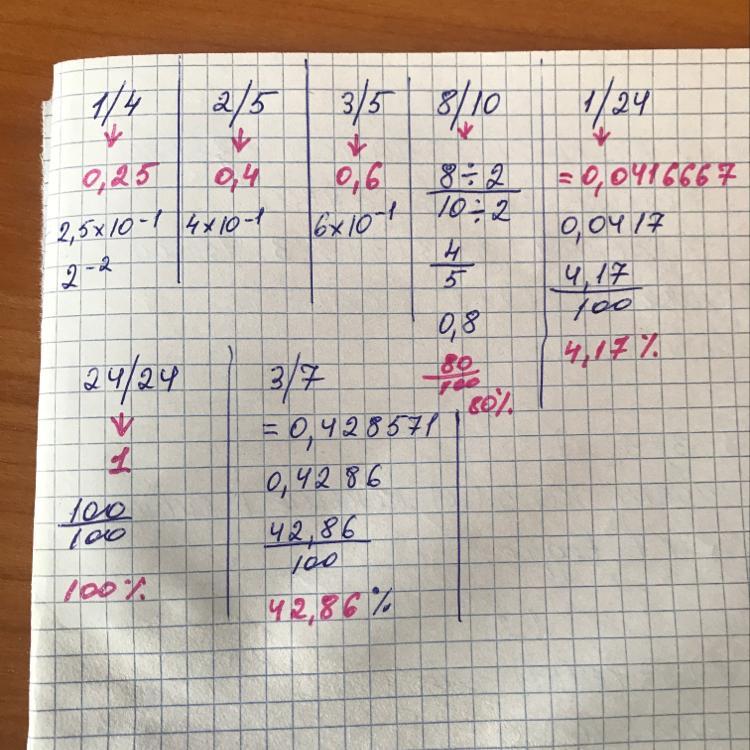 1/4
↓
0,25
2,5×10⁻¹
2⁻²
2/5
↓
0,4
4×10⁻¹
3/5
↓
0,6
6×10⁻¹
8/10
↓
8÷2
10÷2
4
5
0,8
80
100
80%
1/24
↓
=0,0416667
0,0417
4,17
100
4,17%
24/24
↓
1
100
100
100%
3/7
=0,428571
0,4286
42,86
100
42,86%